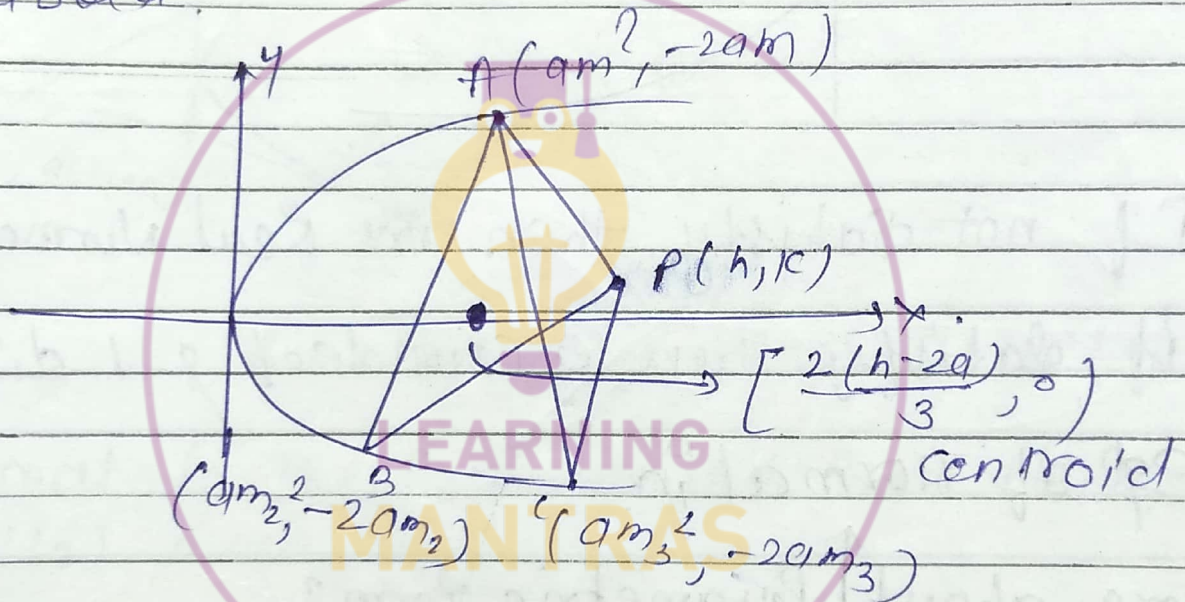 y
A(am², -2am)
P(h, k)
x.
[2(h-2a)/3, 0)
centroid
B
(am₂², -2am₂)
C(am₃², -2am₃)
LEARNING
MANTRAS